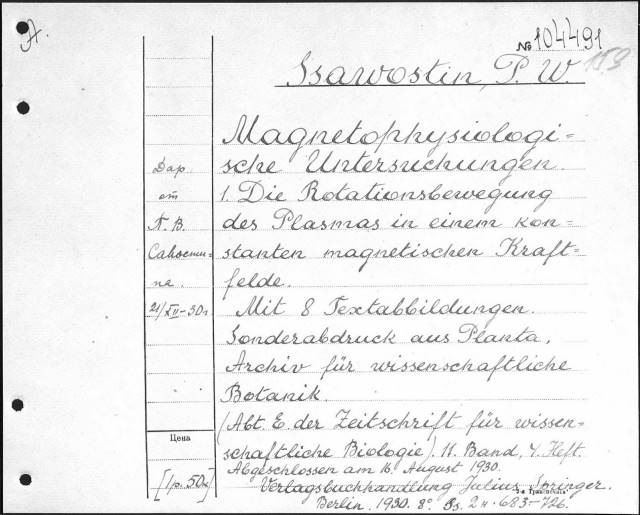 A.
№ 104491
153
Ssawostin, P. W.
Magnetophysiologi=
sche Untersuchungen.
1. Die Rotationsbewegung
des Plasmas in einem kon=
stanten magnetischen Kraft=
felde.
Mit 8 Textabbildungen.
Sonderabdruck aus Planta,
Archiv für wissenschaftliche
Botanik.
(Abt. E. der Zeitschrift für wissen=
schaftliche Biologie). 11. Band, 4. Heft.
Abgeschlossen am 16. August 1930.
Verlagsbuchhandlung Julius Springer.
Berlin. 1930. 8°. 683-726.
Дар
от
В.
21/XII-30г.
Цена
[1р. 50к]